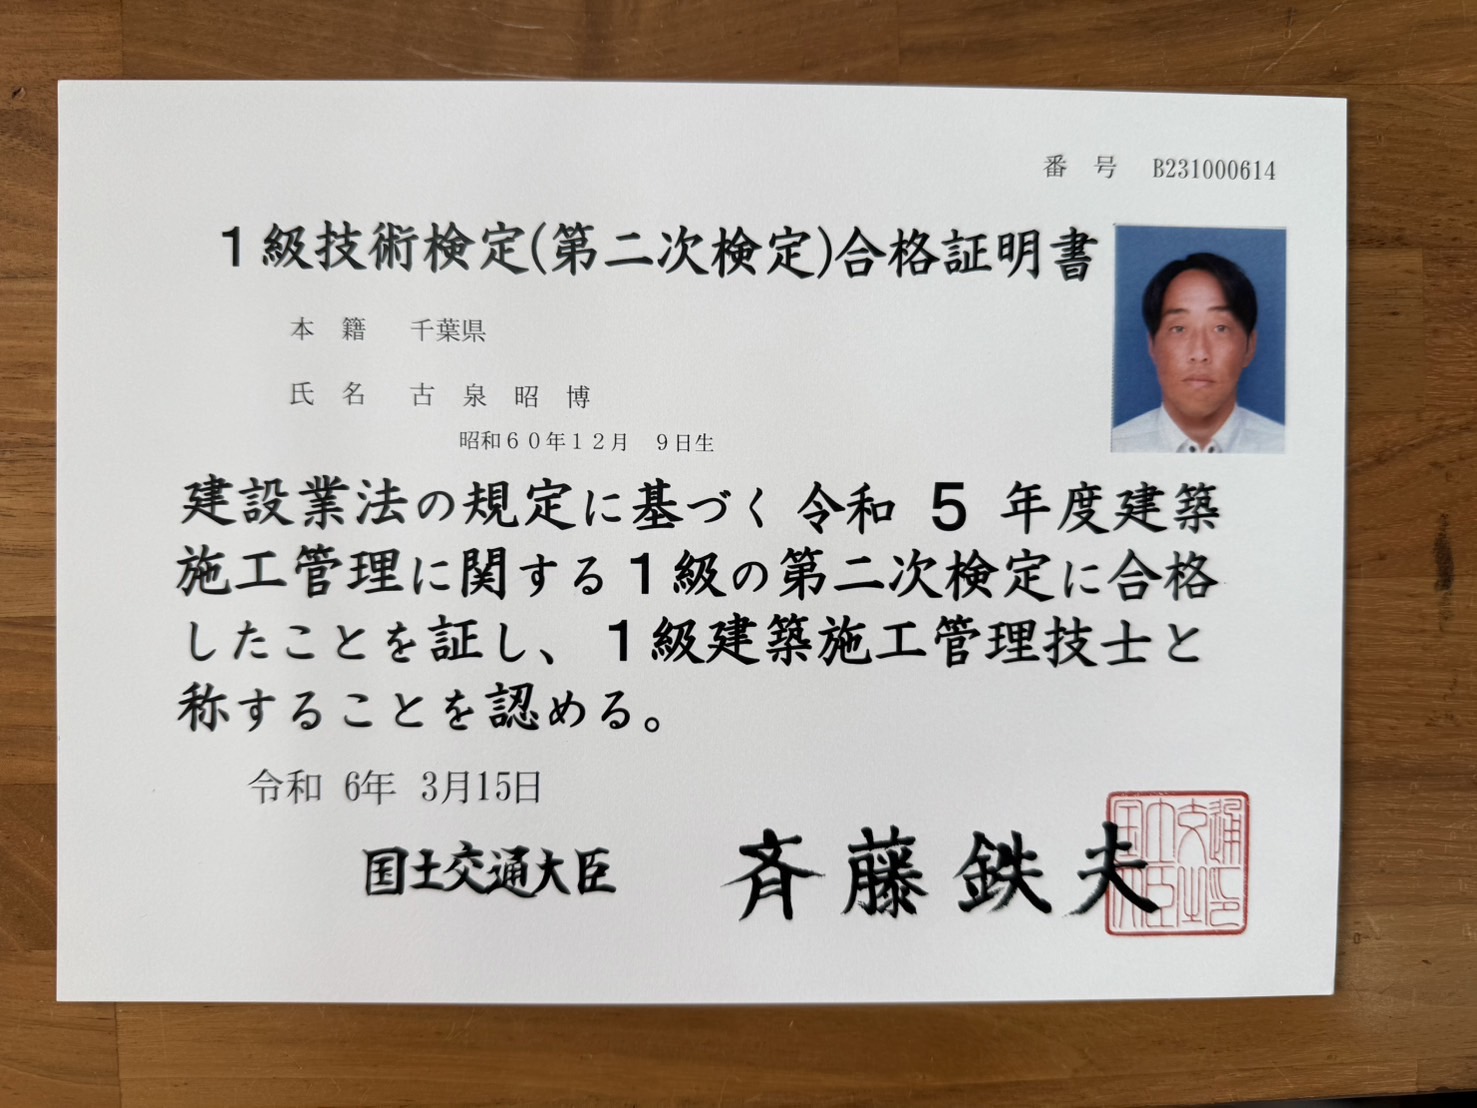 番号 B231000614
1級技術検定(第二次検定)合格証明書
本籍 千葉県
氏名 古泉昭博
昭和60年12月 9日生
建設業法の規定に基づく令和 5 年度建築
施工管理に関する1級の第二次検定に合格
したことを証し、1級建築施工管理技士と
称することを認める。
令和 6年 3月15日
国土交通大臣 斉藤鉄夫
国土交通大臣之印